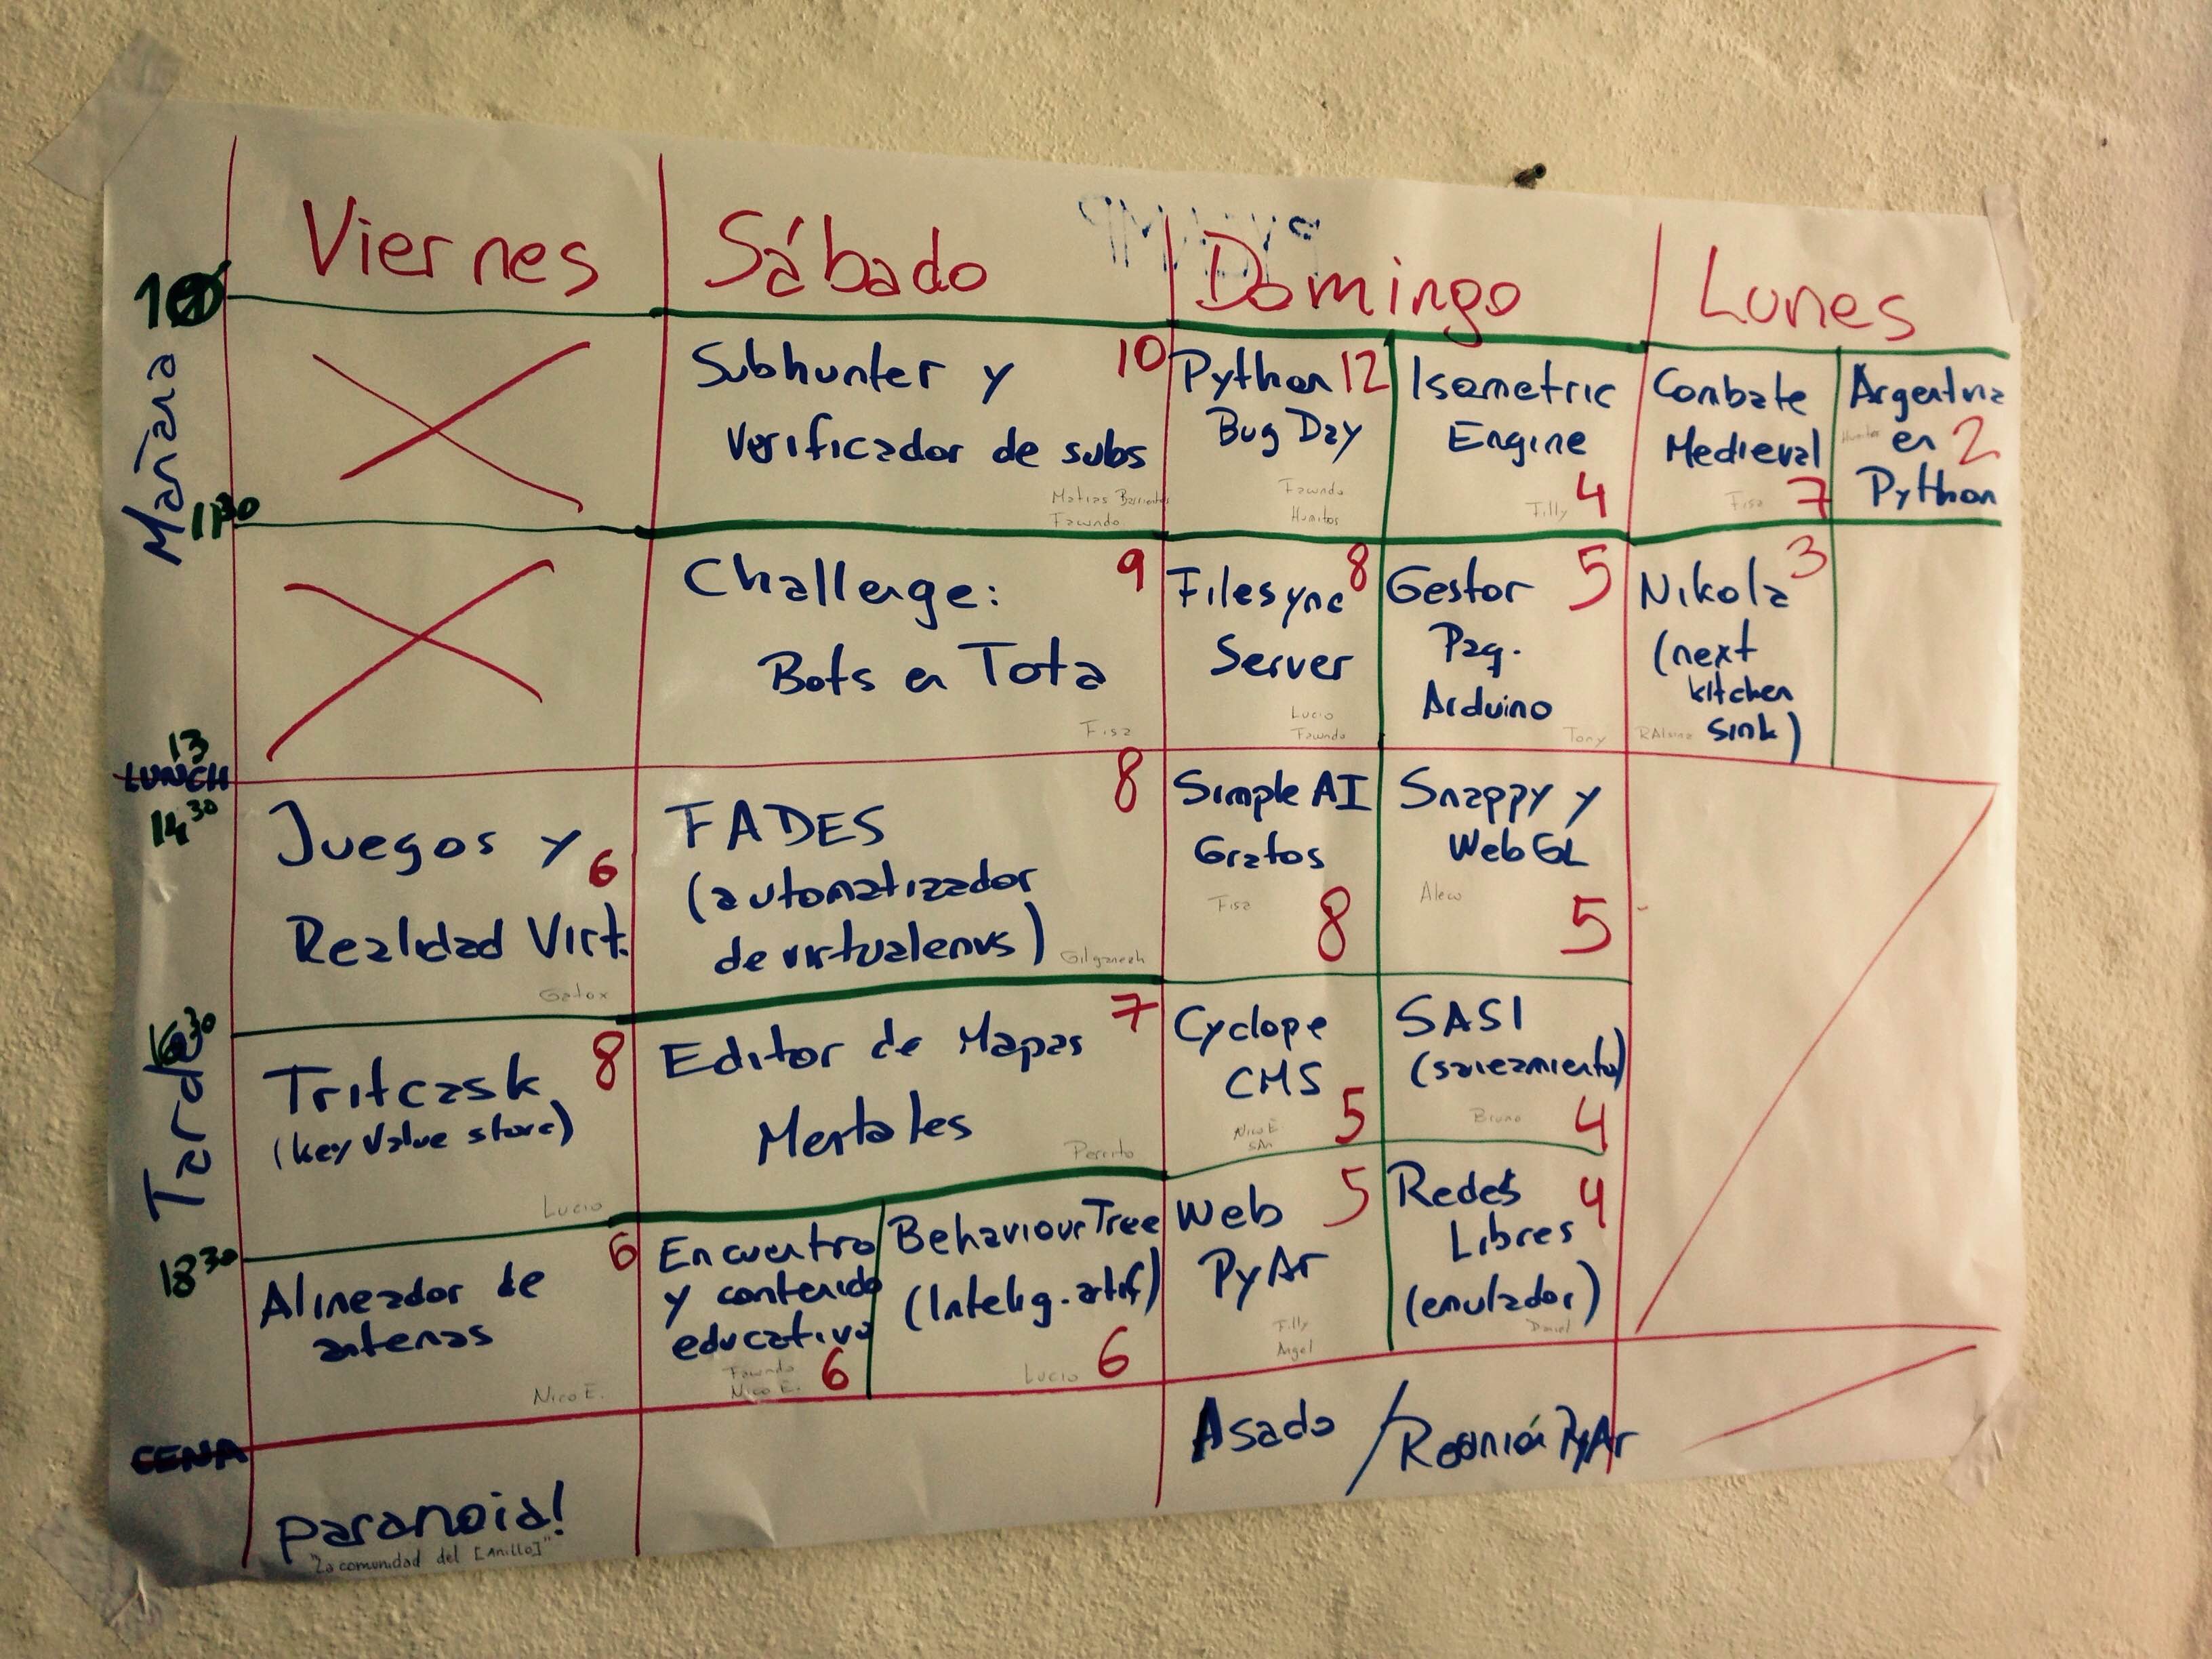 Viernes
Sábado
Domingo
Lunes
Mañana
10
Subhunter y 10
Verificador de subs
Matias Barrientos
Facundo
Python 12
Bug Day
Facundo
Humitos
Isometric
Engine
4
Tilly
Combate
Medieval
7
Fisa
Argentina
en 2
Python
Humitos
11 30
Challenge: 9
Bots en Tota
Fisa
Filesync 8
Server
Lucio
Facundo
Gestor 5
Paq.
Arduino
Tony
Nikola 3
(next
kitchen
sink)
RAlsina
13
LUNCH
14 30
Tarde
Juegos y 6
Realidad Virt.
Gatox
FADES 8
(automatizador
de virtualenvs)
Gilgamesh
Simple AI
Gratos
Fisa
8
Snappy y
WebGL
Alecu
5
16 30
Tritcask 8
(key value store)
Lucio
Editor de Mapas 7
Mentales
Perrito
Cyclope
CMS
5
Nico E
SAn
SASI
(saneamiento)
Bruno
4
18 30
Alineador de 6
antenas
Nico E.
Encuentro
y contenido
educativo
Facundo
Nico E.
6
BehaviourTree
(Intelig. artif)
Lucio
6
Web 5
PyAr
Tilly
Angel
Redes 4
Libres
(emulador)
Daniel
CENA
Paranoia!
"La comunidad del [Anillo]"
Asado / Reunión PyAr